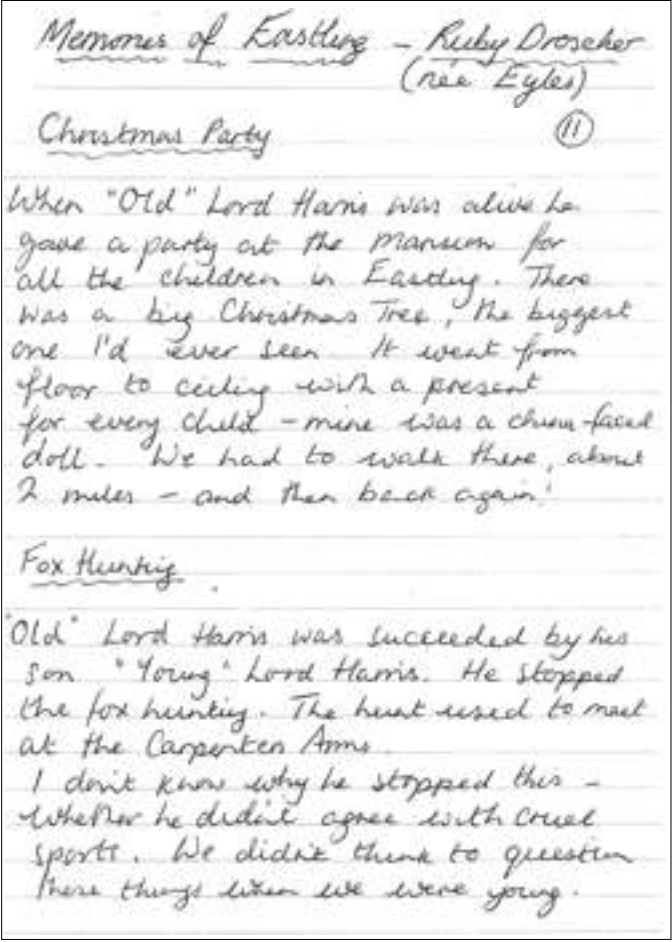 Memories of Eastling - Ruby Droscher
(née Eyles)
Christmas Party
11
When "Old" Lord Harris was alive he
gave a party at the Mansion for
all the children in Eastling. There
was a big Christmas Tree, the biggest
one I'd ever seen. It went from
floor to ceiling with a present
for every child - mine was a china-faced
doll. We had to walk there, about
2 miles - and then back again!
Fox Hunting
"Old" Lord Harris was succeeded by his
son "Young" Lord Harris. He stopped
the fox hunting. The hunt used to meet
at the Carpenters Arms.
I don't know why he stopped this -
whether he didn't agree with cruel
sports. We didn't think to question
these things when we were young.